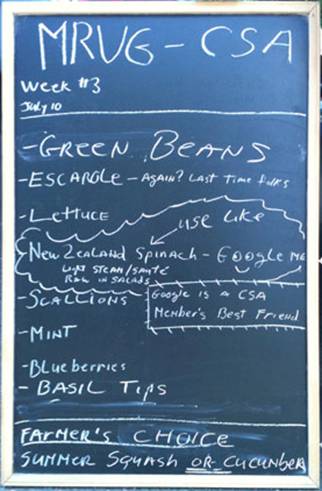 MRUG - CSA
Week #3
July 10
- GREEN BEANS
- ESCAROLE - AGAIN? LAST TIME folks
- LETTUCE
USE LIKE
New Zealand Spinach - Google ME
LIGHT STEAM/SAUTÉ
RAW IN SALADS
- SCALLIONS
Google is a CSA
Member's Best Friend
- MINT
- BLueberries
- BASIL TIPS
FARMER'S CHOICE
SUMMER SQUASH OR CUCUMBER